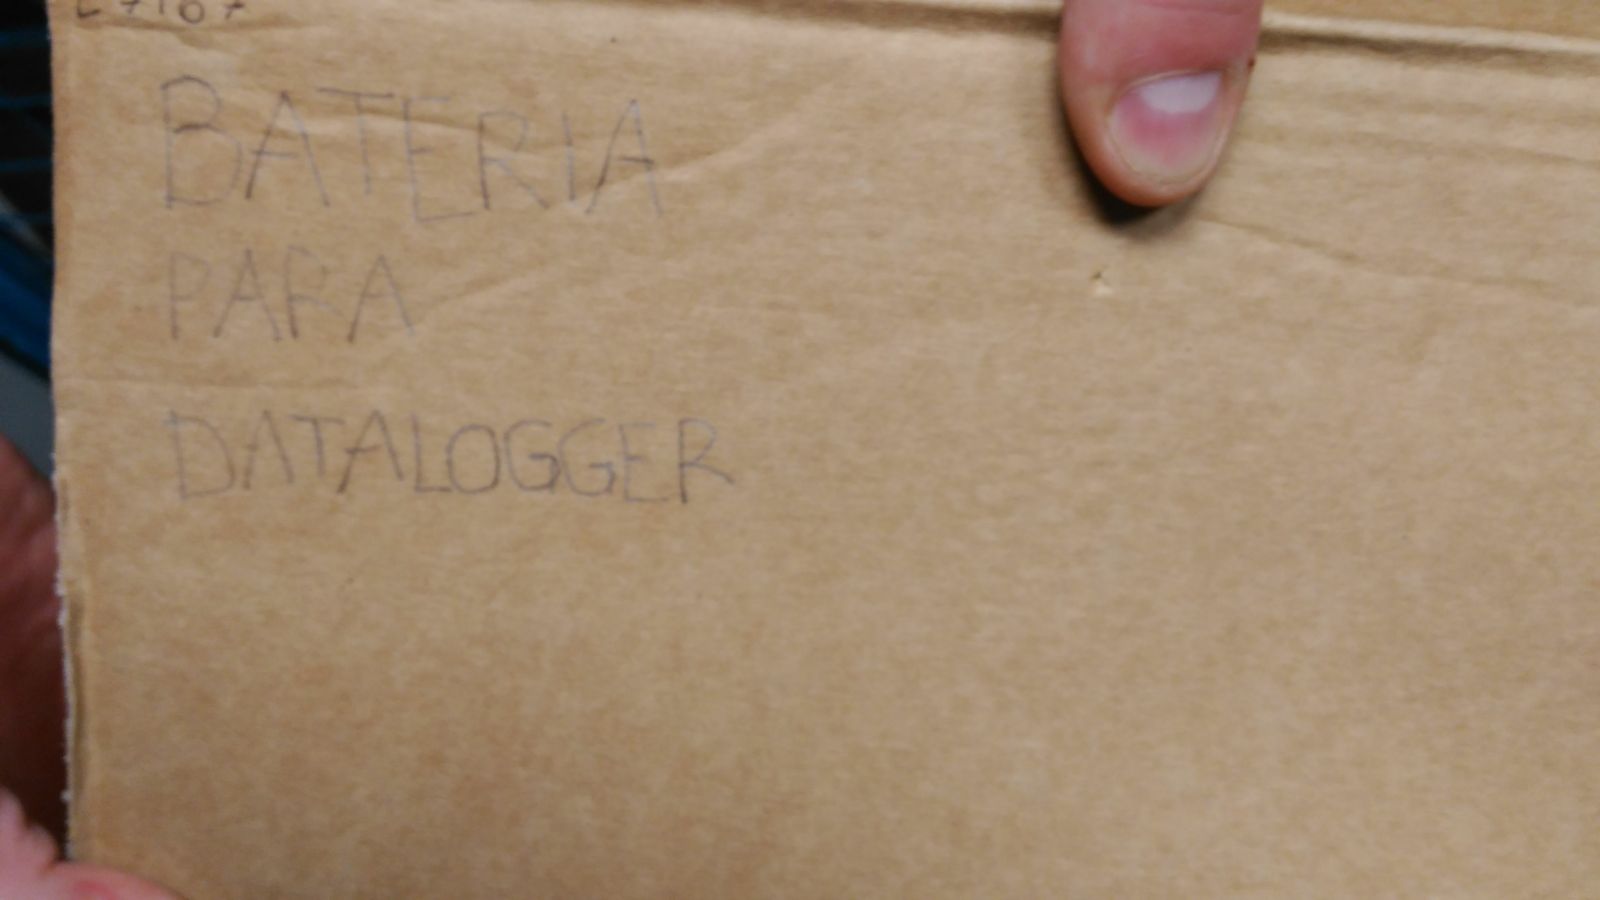 BATERIA
PARA
DATALOGGER